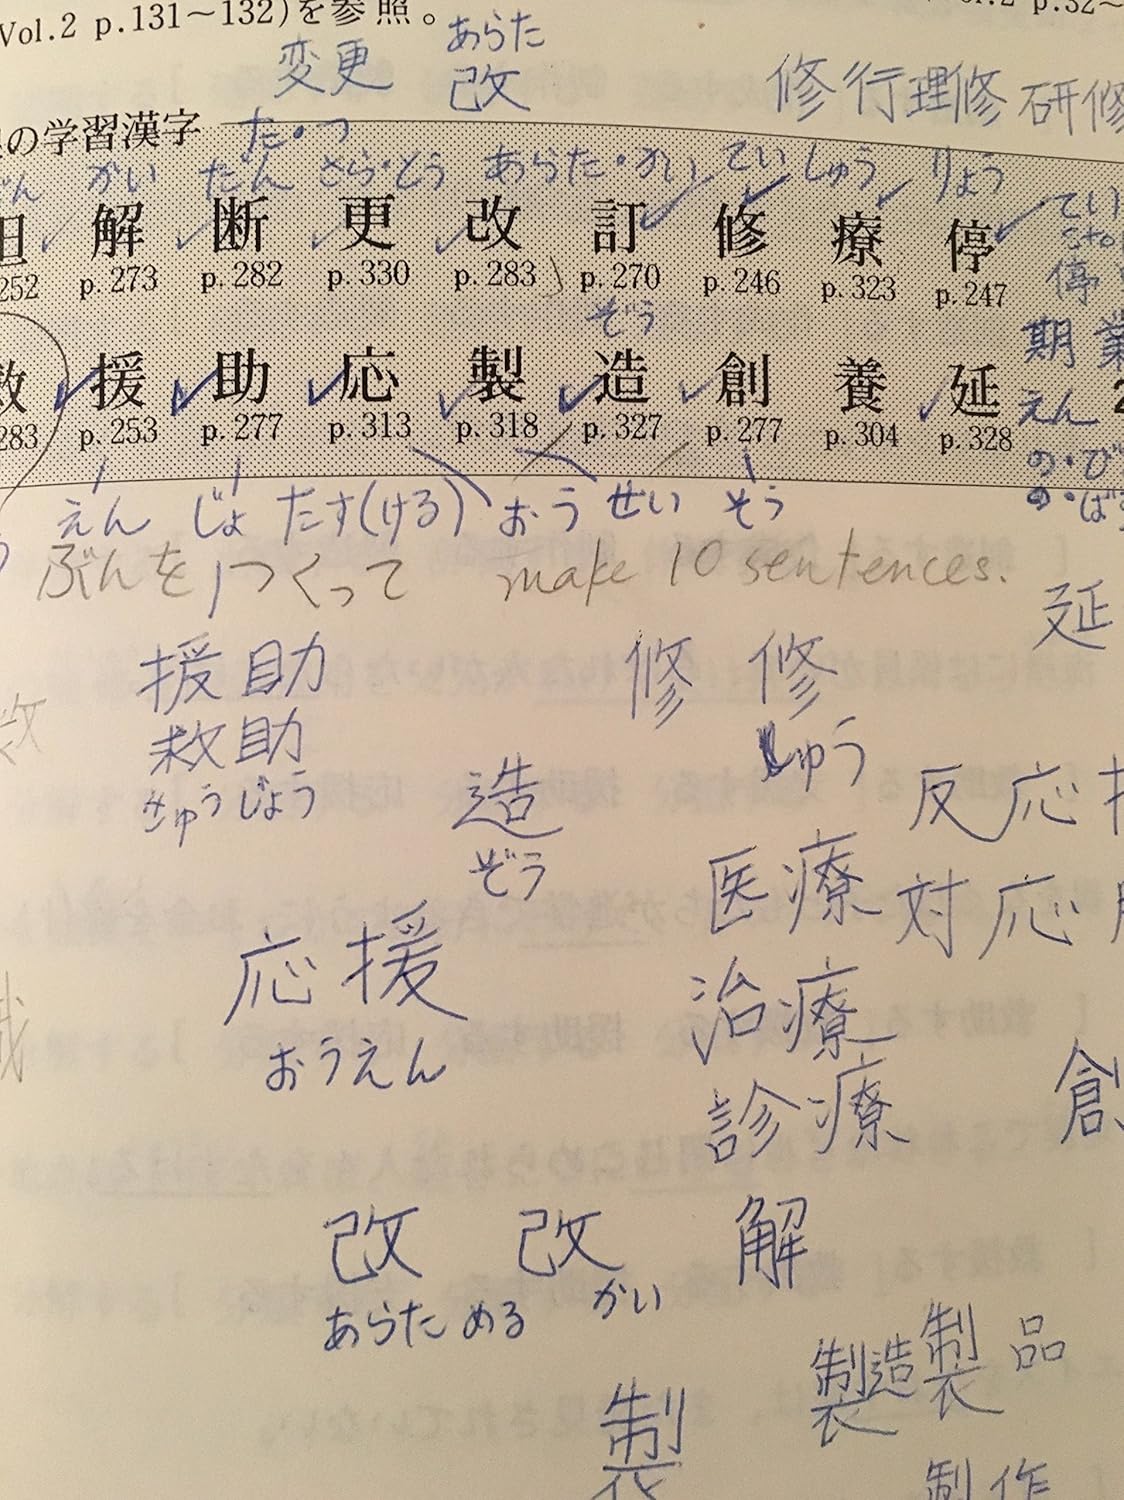 Vol.2 p.131～132)を参照。
変更 あらた
改
修行理修 研修
の学習漢字
た・つ
かい だん さら・とう あらた・かい てい しゅう りょう
解 断 更 改 訂 修 療 停
252 p.273 p.282 p.330 p.283 p.270 p.246 p.323 p.247
てい
停
ぞう
期業
救 援 助 応 製 造 創 養 延
283 p.253 p.277 p.313 p.318 p.327 p.277 p.304 p.328
えん
の・び
の・ばす
えん じょ たす(ける) おう せい そう
ぶんを つくって make 10 sentences.
延
援助 修 修
救助 しゅう
きゅうじょう 造 反応
ぞう 医療 対応
応援 治療
おうえん 診療 創
改 改 解
あらためる かい
製造製品
製
制作